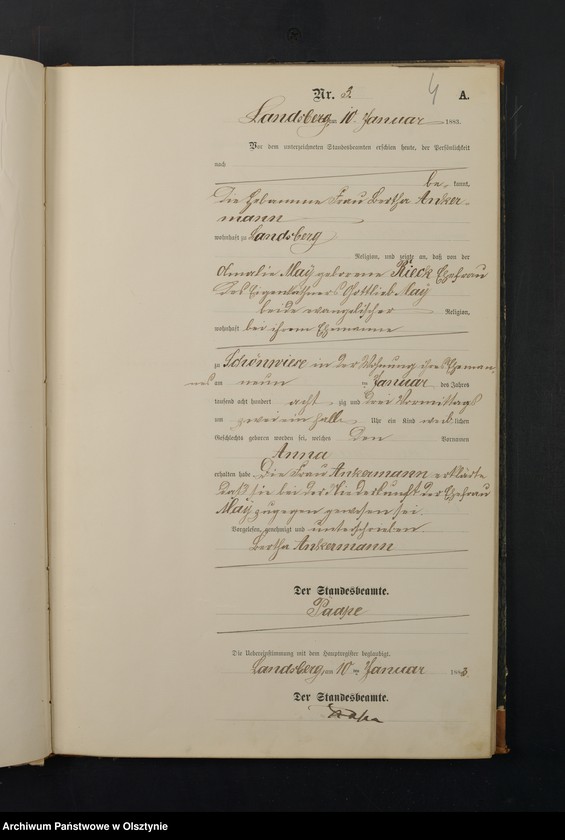 4
Nr. 3. A.
Landsberg, am 10. Januar 1883.
Vor dem unterzeichneten Standesbeamten erschien heute, der Persönlichkeit
nach
be kannt,
die Hebamme Frau Bertha Anker-
mann
wohnhaft zu Landsberg
Religion, und zeigte an, daß von der
Amalie May geborene Rieck Ehefrau
des Eigenkäthners Gottlieb May
beide evangelischer Religion,
wohnhaft bei ihrem Ehemanne
zu Schönwiese in der Wohnung ihres Eheman-
nes am neun ten Januar des Jahres
tausend acht hundert acht zig und drei Vormittags
um zwei ein halb Uhr ein Kind weib lichen
Geschlechts geboren worden sei, welches den Vornamen
Anna
erhalten habe. Die Frau Ankermann erklärte
daß sie bei der Niederkunft der Ehefrau
May zugegen gewesen sei.
Vorgelesen, genehmigt und unterschrieben
Bertha Ankermann
Der Standesbeamte.
Die Uebereinstimmung mit dem Hauptregister beglaubigt.
Landsberg, am 10 ten Januar 1883.
Der Standesbeamte.
Archiwum Państwowe w Olsztynie